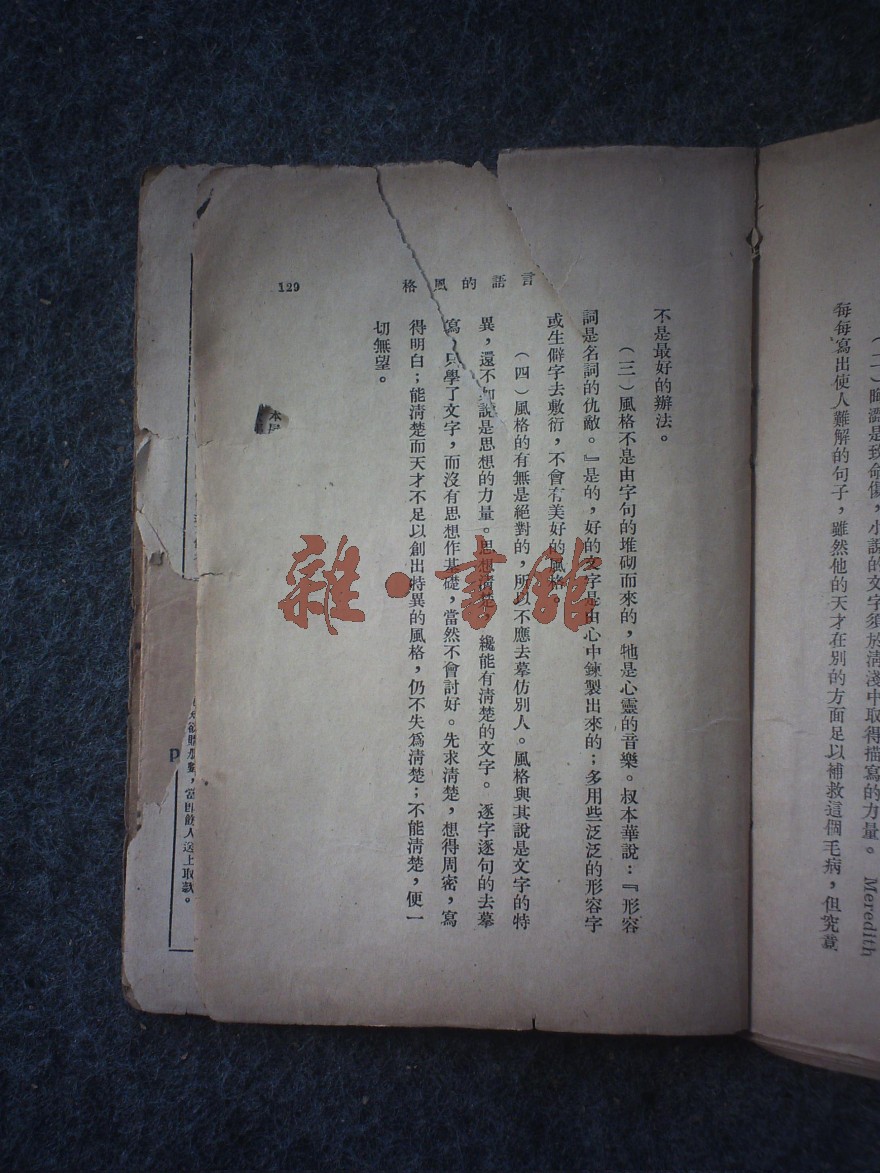 （二）晦澀是致命傷，小說的文字須於淸淺中取得描寫的力量。 Meredith
每每寫出使人難解的句子，雖然他的天才在別的方面足以補救這個毛病，但究竟
不是最好的辦法。
（三）風格不是由字句的堆砌而來的，牠是心靈的音樂。叔本華說：『形容
詞是名詞的仇敵。』是的，好的文字是由心中鍊製出來的；多用些泛泛的形容字
或生僻字去敷衍，不會有美好的風格。
（四）風格的有無是絕對的，所以不應去摹仿別人。風格與其說是文字的特
異，還不如說是思想的力量。思想淸楚，纔能有淸楚的文字。逐字逐句的去摹
寫，只學了文字，而沒有思想作基礎，當然不會討好。先求淸楚，想得周密，寫
得明白；能淸楚而天才不足以創出特異的風格，仍不失爲淸楚；不能淸楚，便一
切無望。
言語的風格
129
雜·書館
P
當即飭人送上取款。